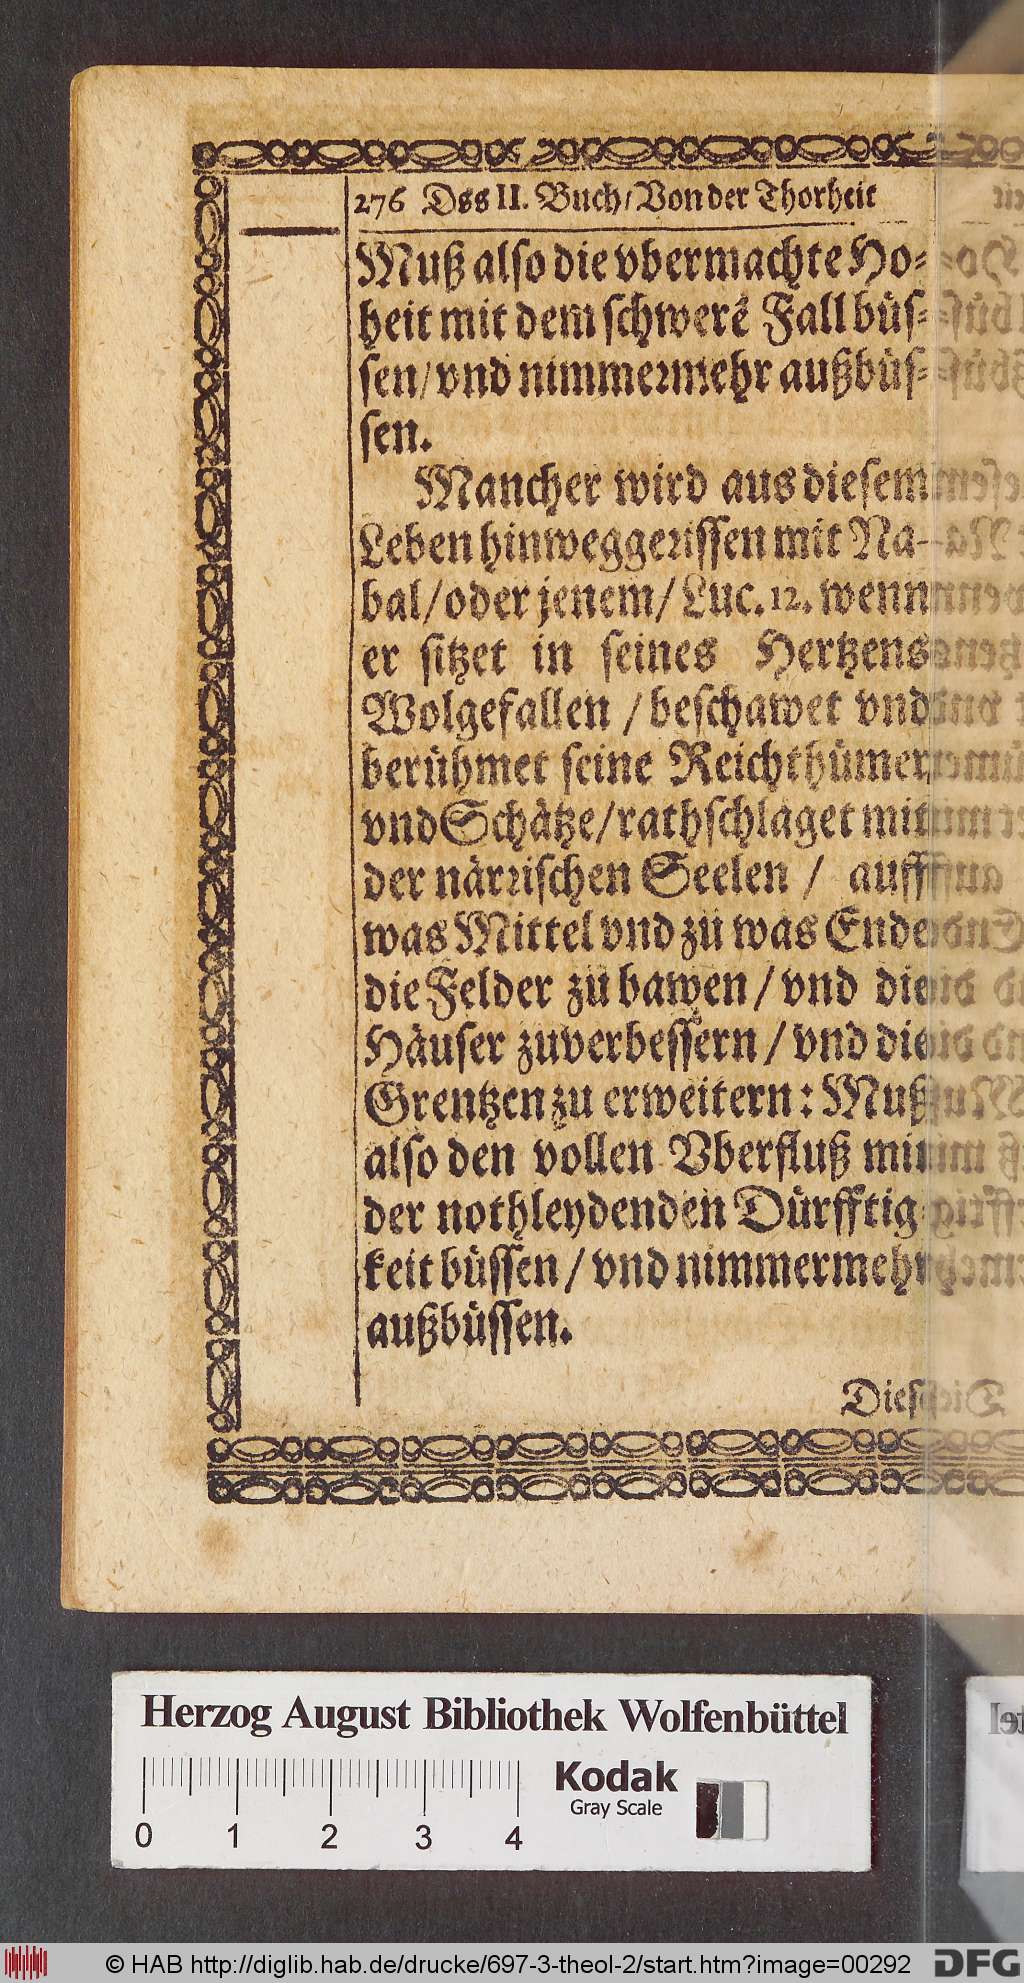 276 Dss II. Buch/Von der Thorheit
Muß also die vbermachte Ho⸗
heit mit dem schwerẽ Fall büs⸗
sen/vnd nimmermehr außbüs⸗
sen.
Mancher wird aus diesem
Leben hinweggerissen mit Na-
bal/oder jenem/Luc.12. wenn
er sitzet in seines Hertzens
Wolgefallen / beschawet vnd
berühmet seine Reichthümer
vnd Schätze/rathschlaget mit
der närrischen Seelen / auff
was Mittel vnd zu was Ende
die Felder zu bawen / vnd die
Häuser zuverbessern / vnd die
Grentzen zu erweitern: Muß
also den vollen Vberfluß mit
der nothleydenden Dürfftig
keit büssen / vnd nimmermehr
außbüssen.
Herzog August Bibliothek Wolfenbüttel
0 1 2 3 4
Kodak
Gray Scale
© HAB http://diglib.hab.de/drucke/697-3-theol-2/start.htm?image=00292
DFG